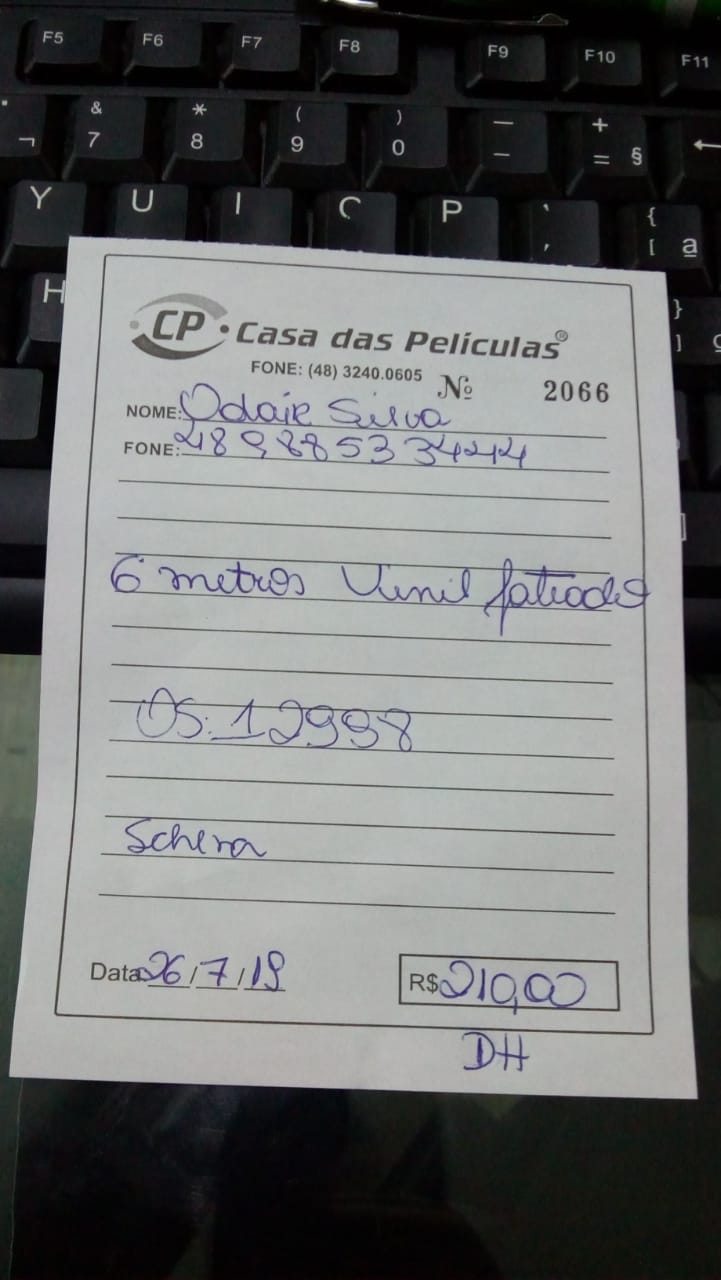 F5 F6 F7 F8 F9 F10 F11
& * ( ) — +
¬ 7 8 9 0 – = § ←
Y U I P ` {
´ [ ª
H }
]
CP Casa das Películas®
FONE: (48) 3240.0605 Nº 2066
NOME: Odair Silva
FONE: 48 98853 3444
6 metros Vinil fatiado
OS: 12998
Data 26/7/19 R$ 210,00
DH